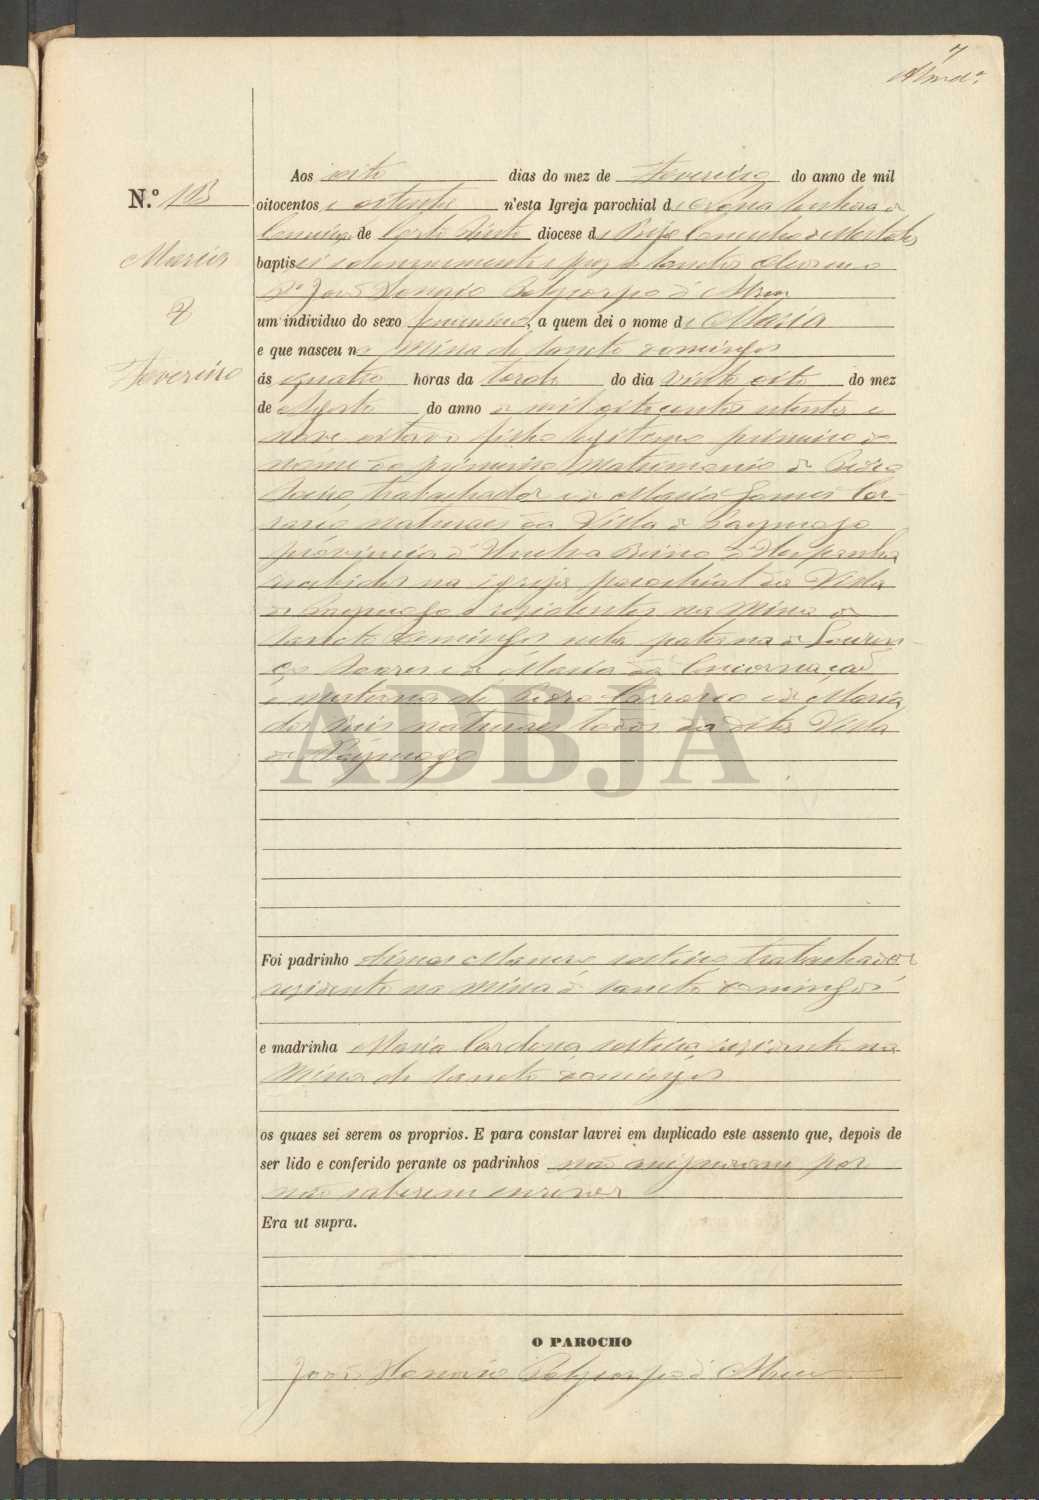 7
N.º 13
Maria
8
Fevereiro
Aos oito dias do mez de Fevereiro do anno de mil
oitocentos e oitenta n'esta Igreja parochial de Nossa Senhora da
Conceição de Corte Pinto diocese de Beja Concelho de Mertola
baptisei solemnemente e puz os sanctos oleos eu o
Pe João Honorio Polycarpo d'Abreu
um individuo do sexo femenino, a quem dei o nome de Maria
e que nasceu na Mina de Sancto Domingos
ás quatro horas da tarde do dia vinte oito do mez
de Agosto do anno de mil oitocentos setenta e
nove filha legitima primeira do
nome do primeiro matrimonio de Pedro
trabalhador e de Maria Gomes
naturaes da Villa de Paymogo
provincia d'Huelva Reino d'Hespanha
recebidos na igreja parochial da Villa
de Paymogo e residentes na Mina de
Sancto Domingos neta paterna de Louren-
ço Soares e de Maria da Encarnação
e materna de Pedro e de Maria
dos Reis naturaes todos da dita Villa
de Paymogo
ADBJA
Foi padrinho solteiro trabalhador
residente na Mina de Sancto Domingos
e madrinha Maria Cardona, solteira, residente na
Mina de Sancto Domingos
os quaes sei serem os proprios. E para constar lavrei em duplicado este assento que, depois de
ser lido e conferido perante os padrinhos não assignaram por
não saberem escrever
Era ut supra.
O PAROCHO
João Honorio Polycarpo d'Abreu